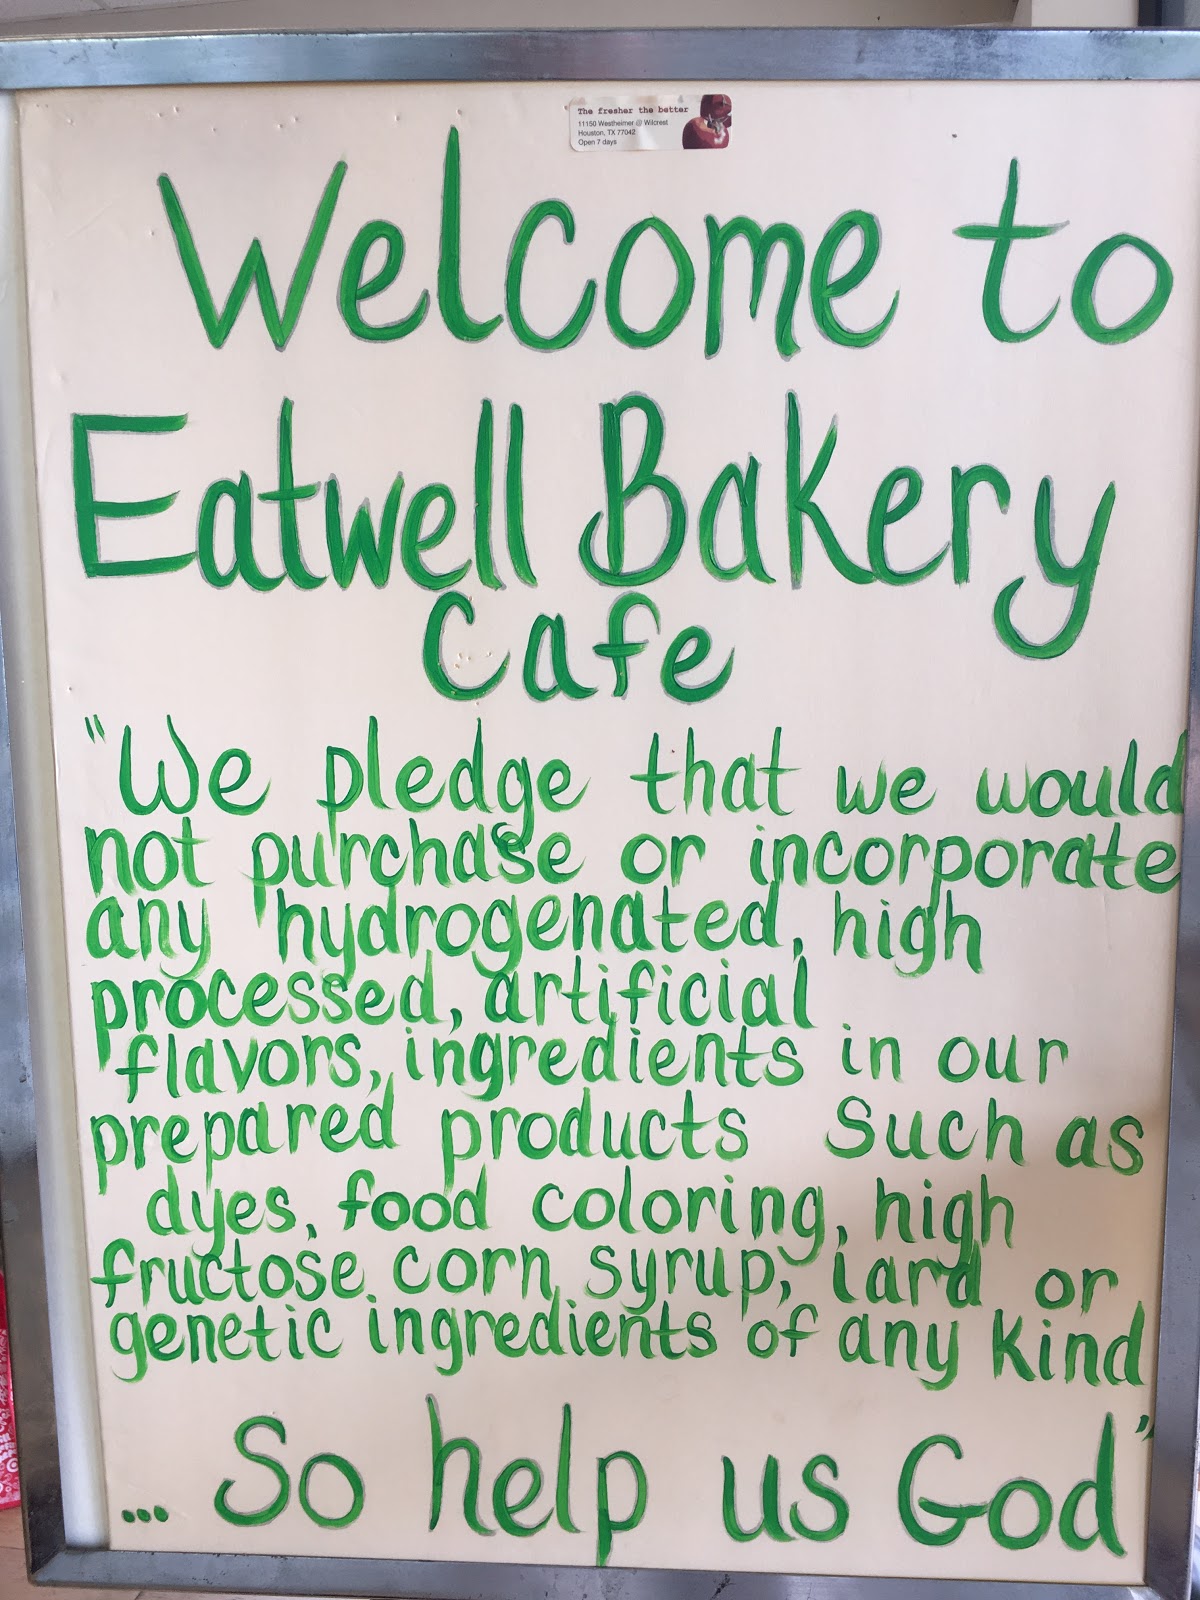 The fresher the better
11150 Westheimer @ Wilcrest
Houston, TX 77042
Open 7 days
Welcome to
Eatwell Bakery
Cafe
"We pledge that we would
not purchase or incorporate
any hydrogenated, high
processed, artificial
flavors, ingredients in our
prepared products Such as
dyes, food coloring, high
fructose corn syrup, lard or
genetic ingredients of any kind
... So help us God"